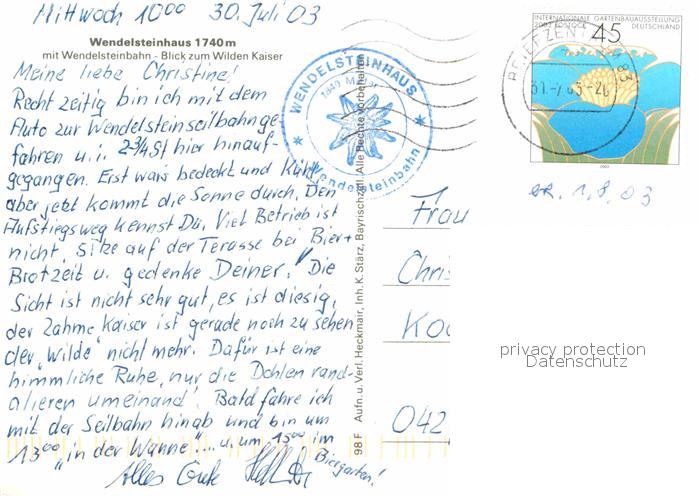 Mittwoch 10⁰⁰ 30. Juli 03
Wendelsteinhaus 1740 m
mit Wendelsteinbahn - Blick zum Wilden Kaiser
Meine liebe Christine!
Recht zeitig bin ich mit dem
Auto zur Wendelsteinseilbahn ge-
fahren u. i. 2¾ St hier hinauf-
gegangen. Erst war's bedeckt und kühl
aber jetzt kommt die Sonne durch. Den
Aufstiegsweg kennst Du. Viel Betrieb ist
nicht. Sitze auf der Terasse bei Bier +
Brotzeit u. gedenke Deiner! Die
Sicht ist nicht sehr gut, es ist diesig,
der Zahme Kaiser ist gerade noch zu sehen
der „Wilde" nicht mehr. Dafür ist eine
himmliche Ruhe, nur die Dohlen rand-
alieren umeinand. Bald fahre ich
mit der Seilbahn hinab und bin um
13⁰⁰ „in der Wanne"... u. um 15⁰⁰ im
Biergarten!
Alles Gute
WENDELSTEINHAUS
Wendelsteinbahn
98 F Aufn. u. Verl. Heckmair, Inh. K. Stärz, Bayrischzell. Alle Rechte vorbehalten
INTERNATIONALE GARTENBAUAUSSTELLUNG
2003 ROSTOCK DEUTSCHLAND
45
BRIEFZENTRUM 83
31.-7.03-20
2003
er. 1.8.03
Frau
Chris
Ko
042
privacy protection
Datenschutz